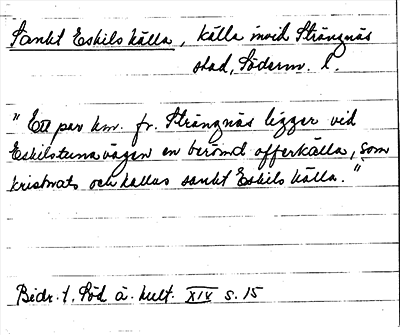 Sankt Eskils källa, källa invid Strängnäs
stad, Söderm. l.
"Ett par km. fr. Strängnäs ligger vid
Eskilstunavägen en berömd offerkälla, som
kristnats och kallas sankt Eskils källa."
Bidr. t. Söd ä. kult. XIV s. 15